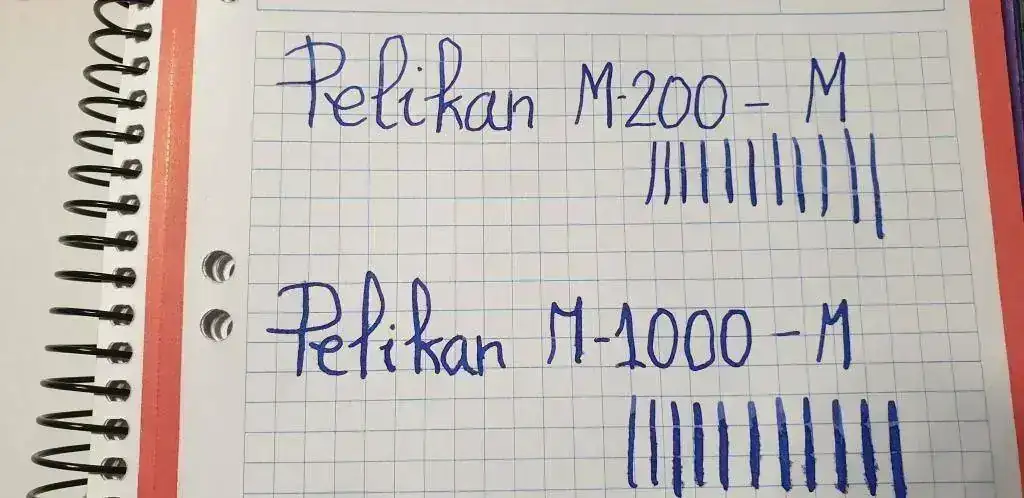 Pelikan M-200 - M
Pelikan M-1000 - M